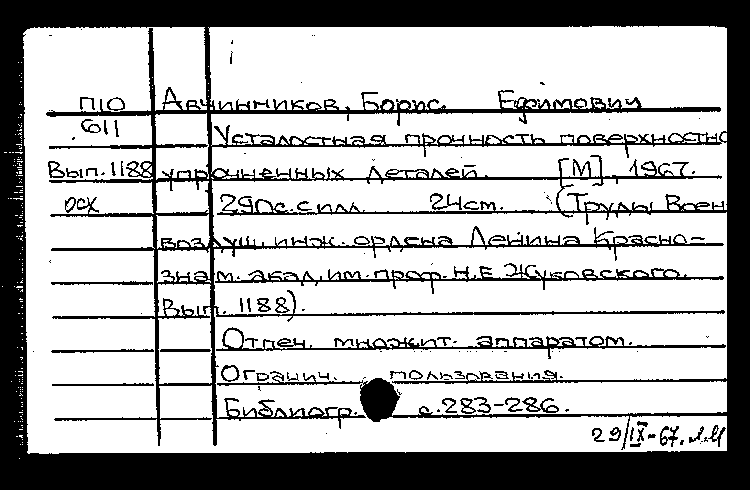 П10 Авчинников, Борис Ефимович
611 Усталостная прочность поверхностно
Вып. 1188 упрочненных деталей. [М], 1967.
осх 290с. с илл. 24см. (Труды Воен
воздуш. инж. ордена Ленина Красно-
знам. акад. им. проф. Н.Е. Жуковского.
Вып. 1188).
Отпеч. множит. аппаратом.
Огранич. пользования.
Библиогр. с. 283-286.
29/IX-67.